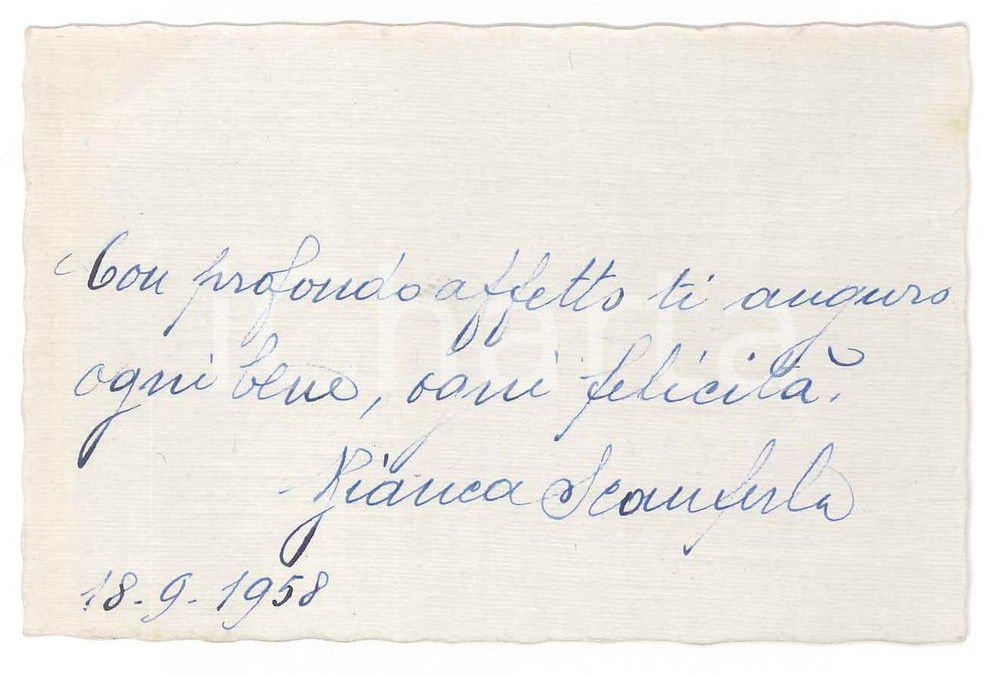 Con profondo affetto ti auguro
ogni bene, ogni felicità.
Bianca Scanferla
18-9-1958